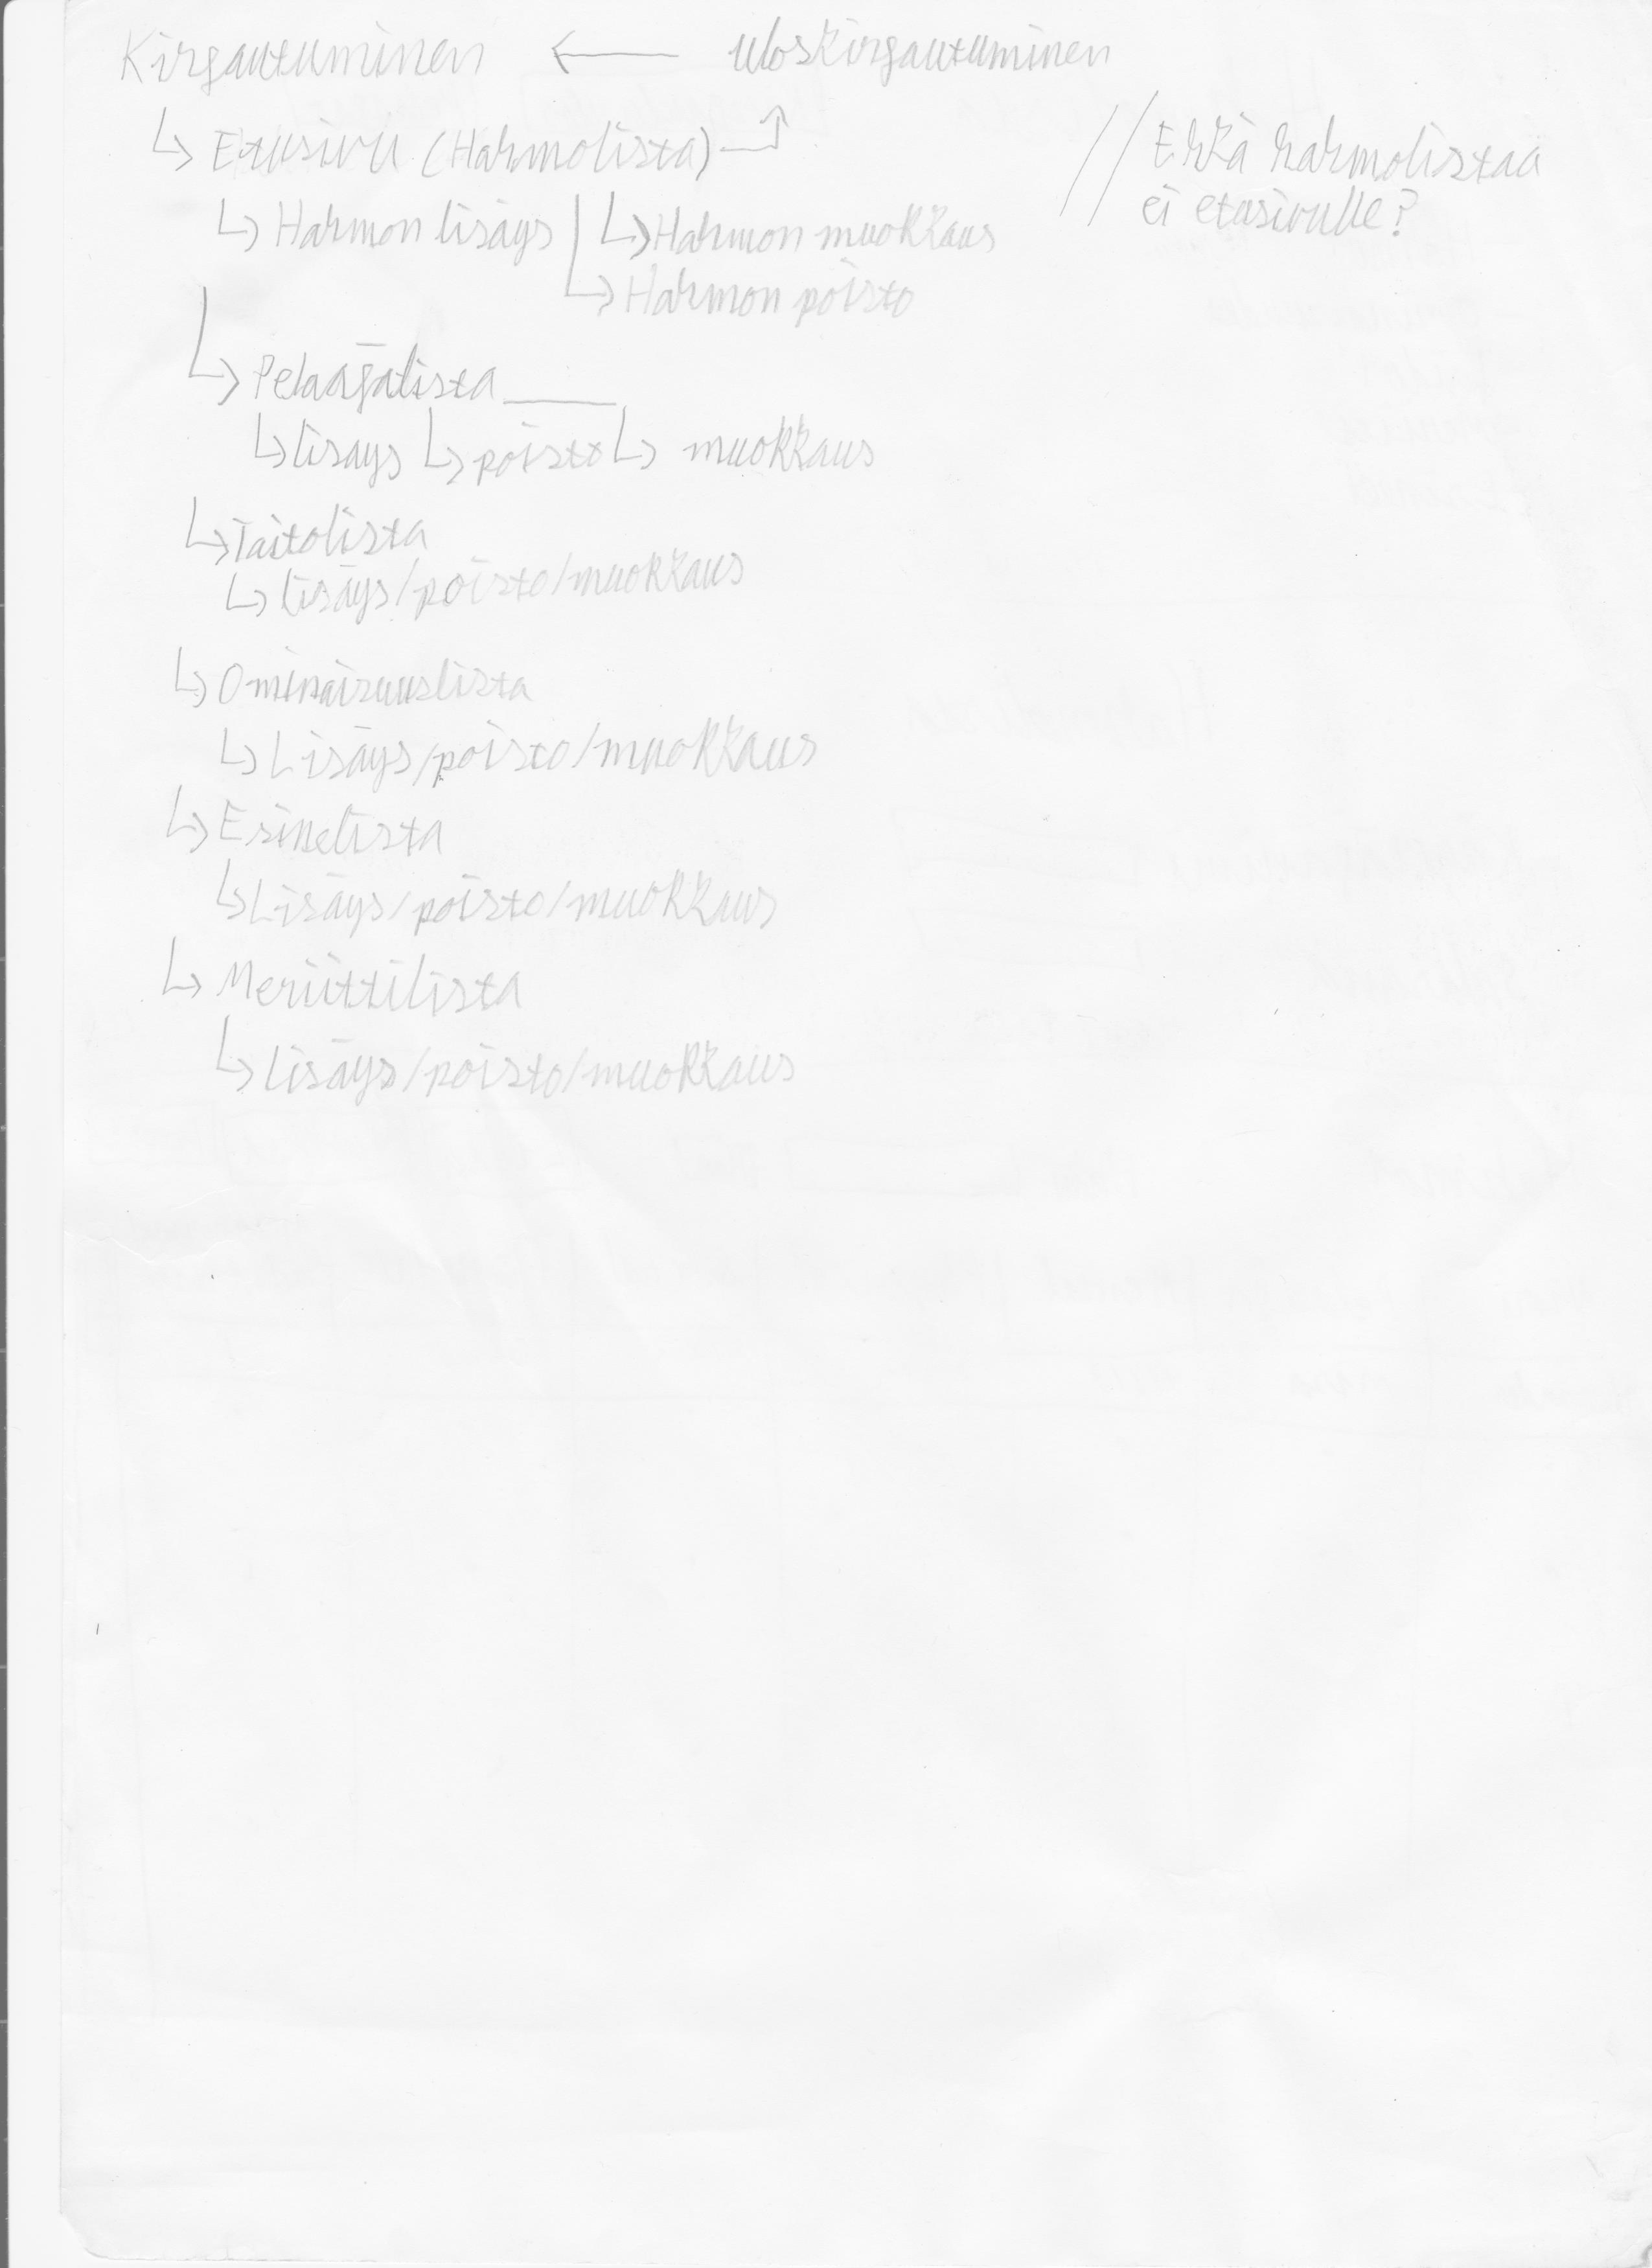 Kirjautuminen ← uloskirjautuminen
↳ Etusivu (Hahmolista)
// Ehkä hahmolistaa
ei etusivulle?
↳ Hahmon lisäys ↳ Hahmon muokkaus
↳ Hahmon poisto
↳ Pelaajalista
↳ lisäys ↳ poisto ↳ muokkaus
↳ Taitolista
↳ lisäys/poisto/muokkaus
↳ Ominaisuuslista
↳ Lisäys/poisto/muokkaus
↳ Esinelista
↳ Lisäys/poisto/muokkaus
↳ Meriittilista
↳ lisäys/poisto/muokkaus